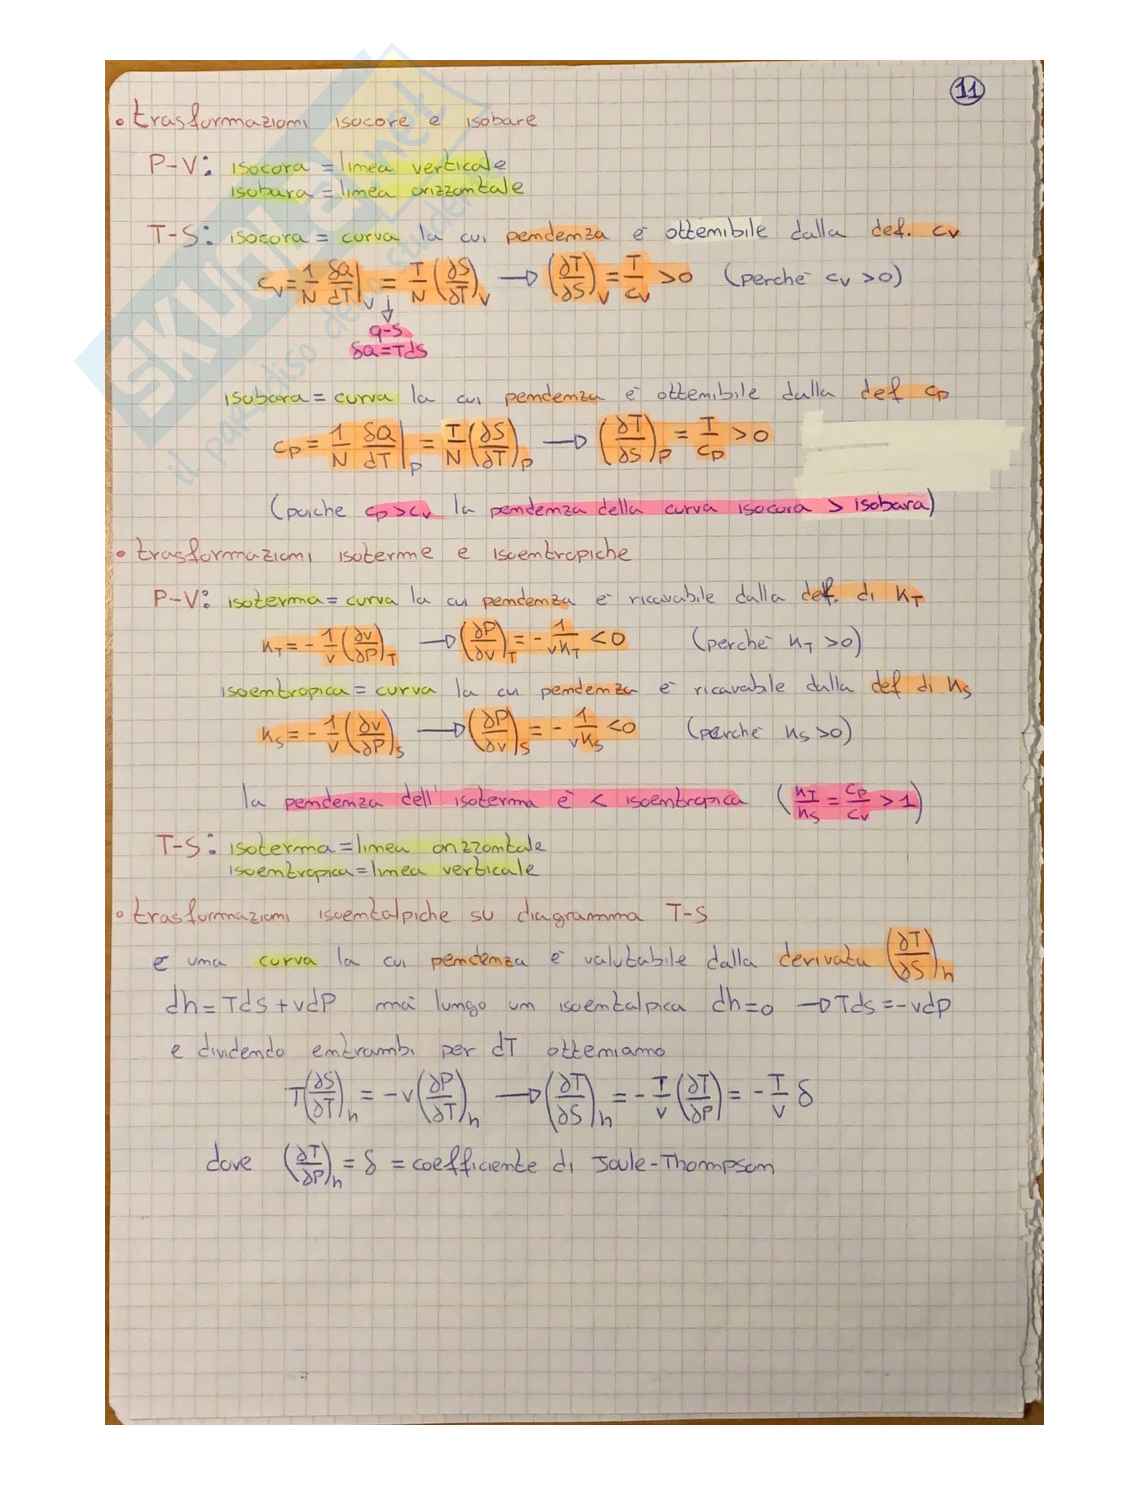 11
• trasformazioni isocore e isobare
P-V: isocora = linea verticale
isobara = linea orizzontale
T-S: isocora = curva la cui pendenza è ottenibile dalla def. cv
cv = 1/N δQ/dT|v = T/N (∂S/∂T)v → (∂T/∂S)v = T/cv > 0 (perché cv > 0)
q-s
δQ = Tds
isobara = curva la cui pendenza è ottenibile dalla def cp
cp = 1/N δQ/dT|p = T/N (∂S/∂T)p → (∂T/∂S)p = T/cp > 0
(poiche cp > cv la pendenza della curva isocora > isobara)
• trasformazioni isoterme e isoentropiche
P-V: isoterma = curva la cui pendenza è ricavabile dalla def. di KT
KT = - 1/v (∂v/∂P)T → (∂P/∂v)T = - 1/vKT < 0 (perché KT > 0)
isoentropica = curva la cui pendenza è ricavabile dalla def di KS
KS = - 1/v (∂v/∂P)S → (∂P/∂v)S = - 1/vKS < 0 (perché KS > 0)
la pendenza dell' isoterma è < isoentropica (KT/KS = cp/cv > 1)
T-S: isoterma = linea orizzontale
isoentropica = linea verticale
• trasformazioni isoentalpiche su diagramma T-S
è una curva la cui pendenza è valutabile dalla derivata (∂T/∂S)h
dh = Tds + vdP ma lungo un isoentalpica dh = 0 → Tds = -vdP
e dividendo entrambi per dT otteniamo
T(∂S/∂T)h = - v(∂P/∂T)h → (∂T/∂S)h = - T/v (∂T/∂P) = - T/v δ
dove (∂T/∂P)h = δ = coefficiente di Joule-Thompson
SKUOLA.net
il paradiso dello studente